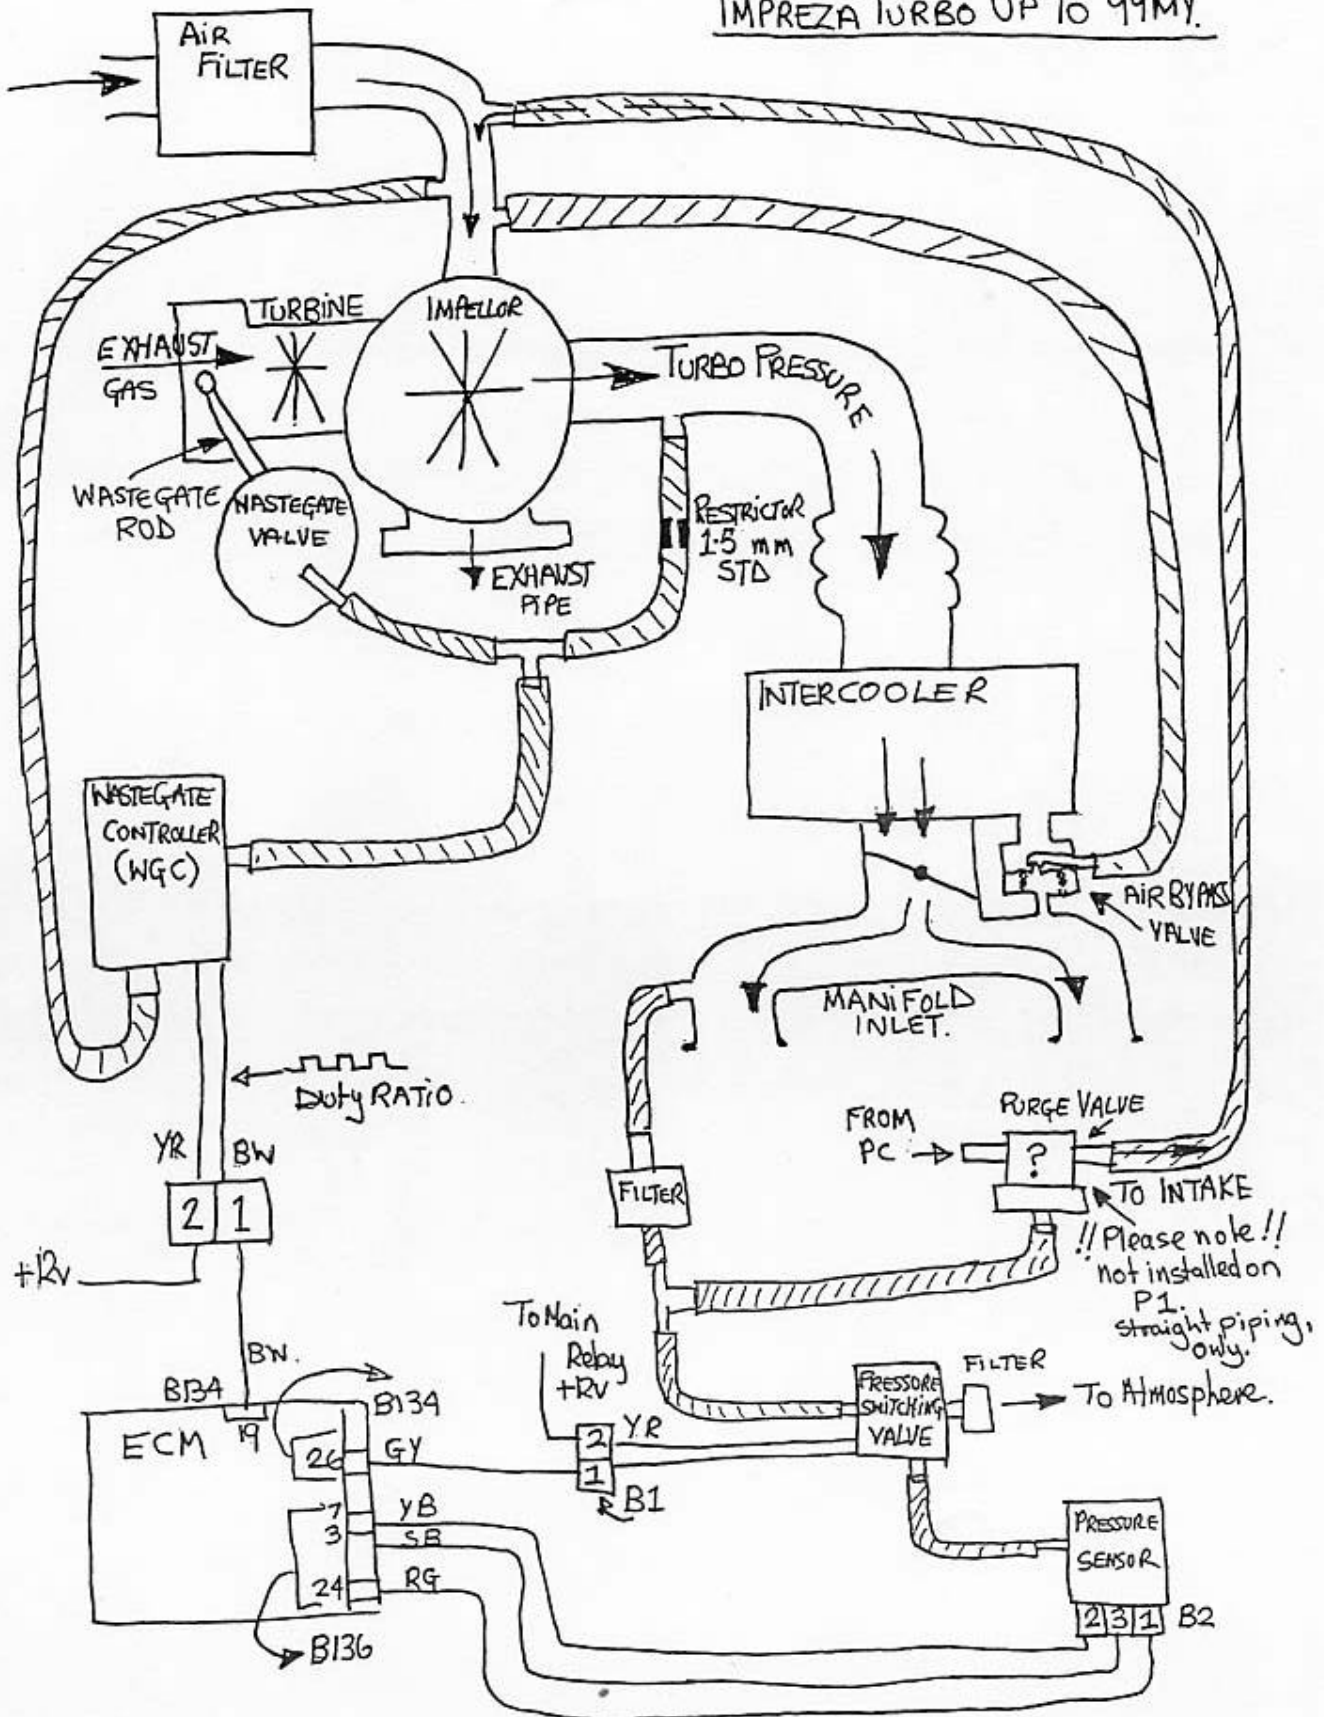 IMPREZA TURBO UP TO 99MY.
AiR
FiLTER
TURBiNE
IMPELLOR
EXHAUST
GAS
TURBO PRESSURE
WASTEGATE
ROD
WASTEGATE
VALVE
RESTRICTOR
1.5 mm
STD
EXHAUST
PIPE
INTERCOOLER
WASTEGATE
CONTROLLER
(WGC)
AiR BYPASS
VALVE
MANiFOLD
INLET.
Duty RATiO.
FROM
PC
PURGE VALVE
?
YR
BW
2 1
FiLTER
TO INTAKE
!! Please note !!
not installed on
P1.
Straight piping,
only.
+12v
To Main
Relay
+12v
BW.
B134
19
B134
ECM
26
GY
2
YR
1
B1
PRESSURE
SWITCHING
VALVE
FILTER
To Atmosphere.
7
YB
3
SB
24
RG
B136
PRESSURE
SENSOR
2 3 1
B2